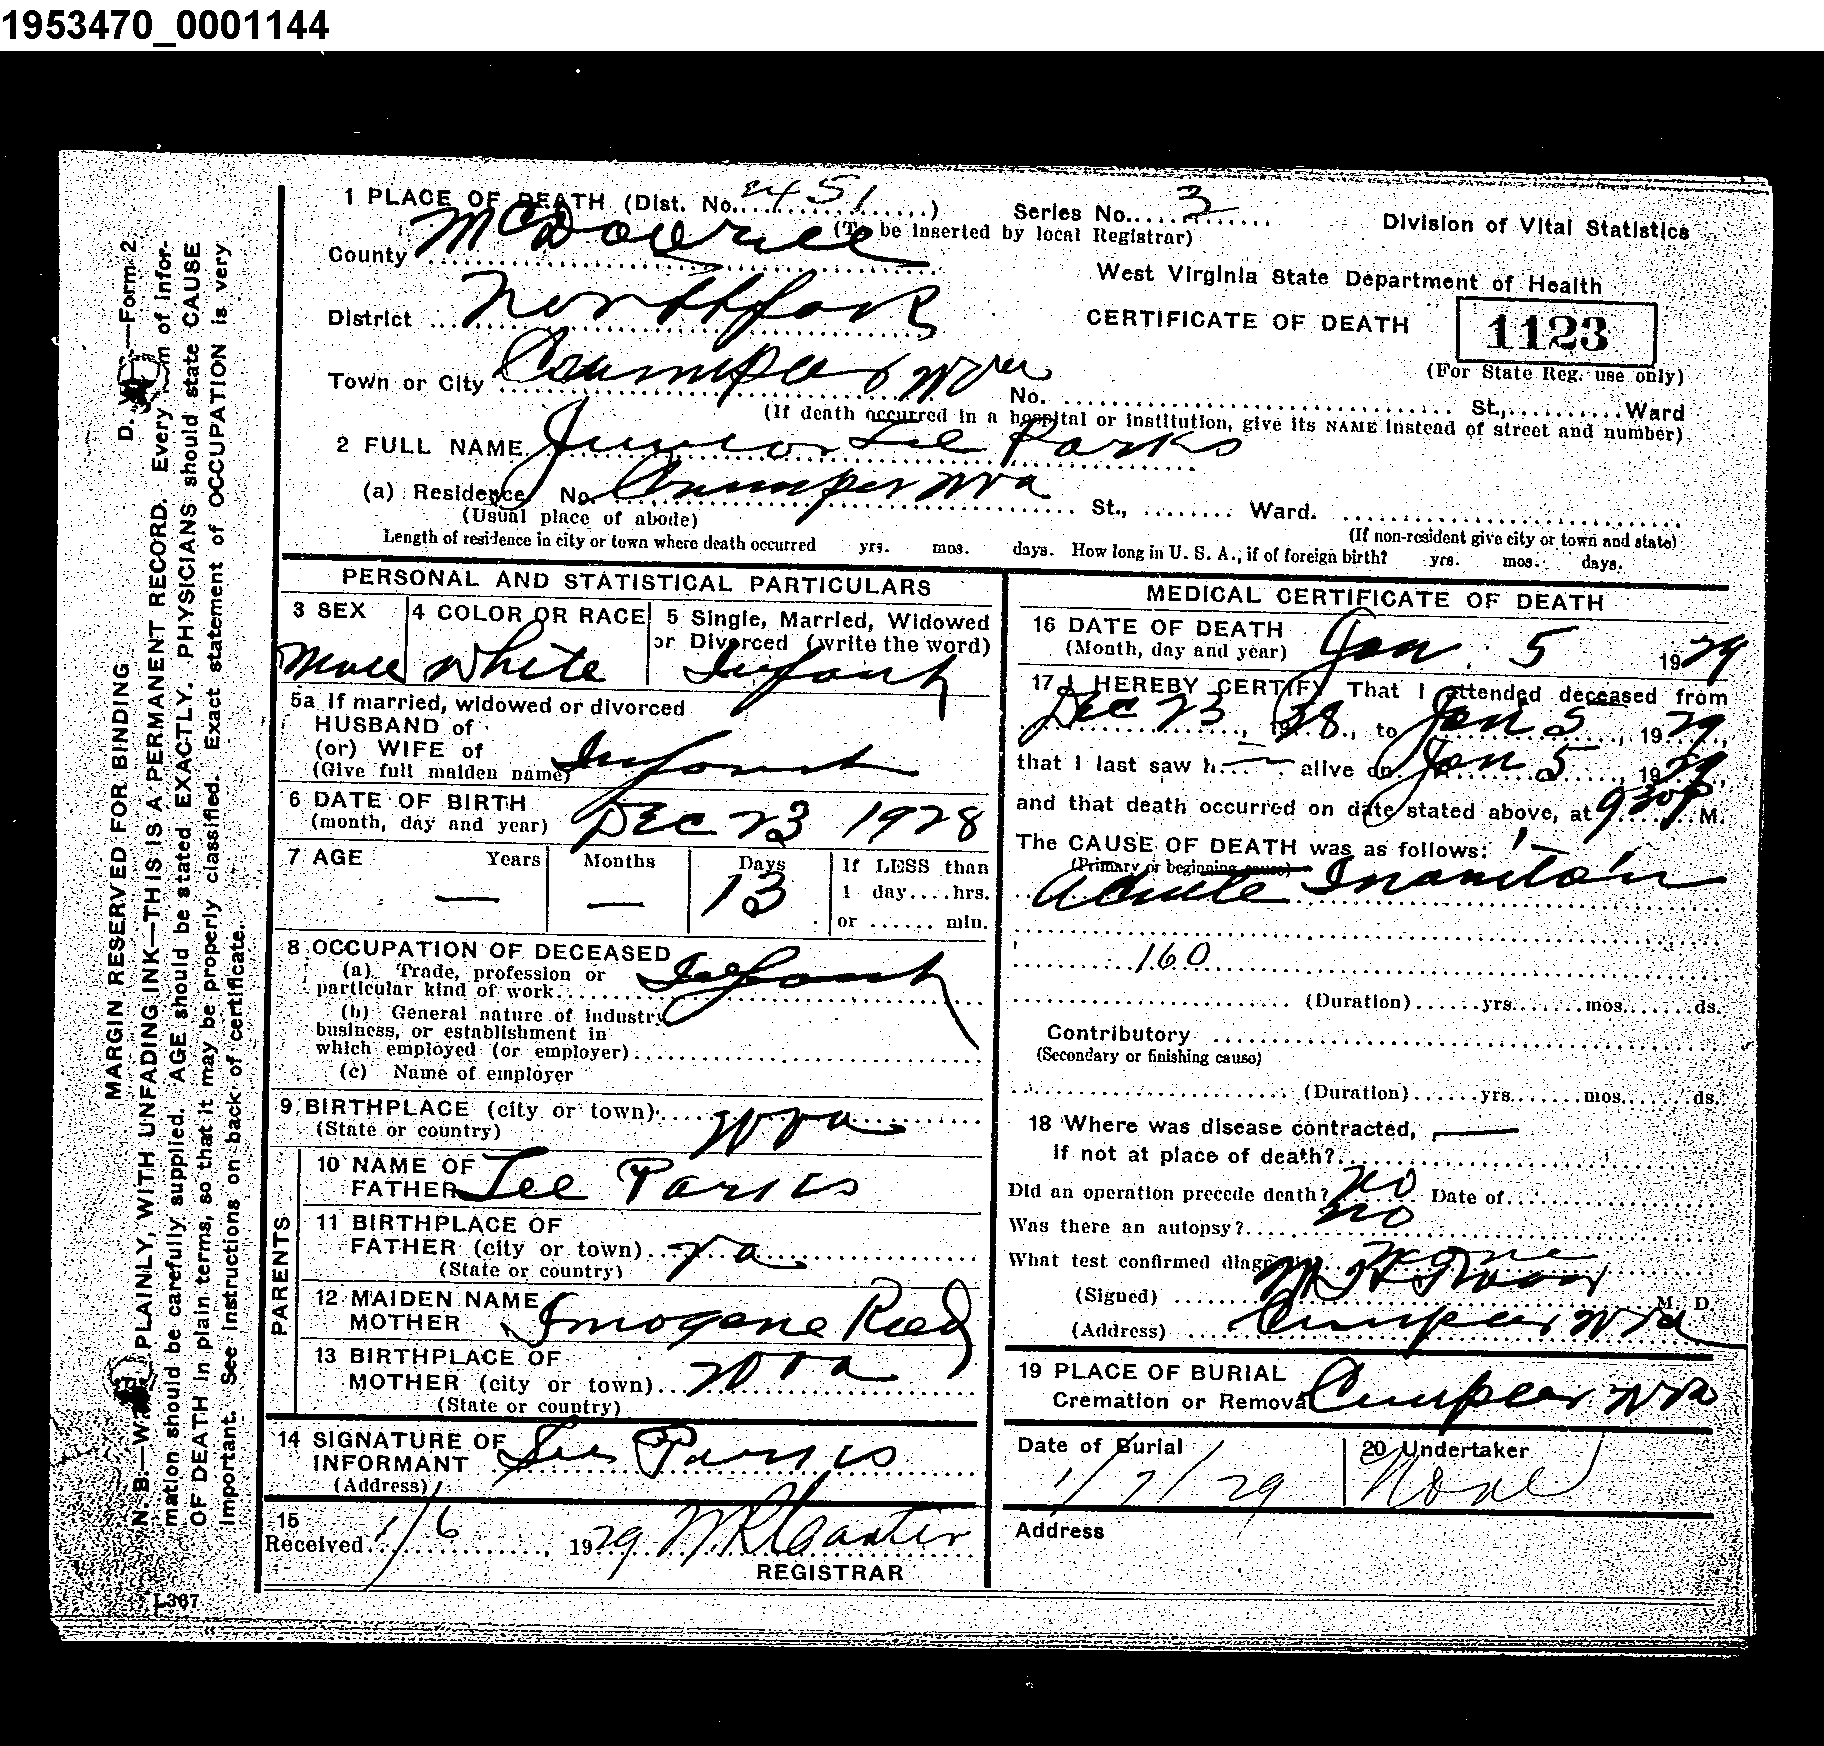 1953470_0001144
1 PLACE OF DEATH (Dist. No. 2451) Series No. 3
(To be inserted by local Registrar)
Division of Vital Statistics
County McDowell
West Virginia State Department of Health
District Northfork
CERTIFICATE OF DEATH 1123
(For State Reg. use only)
Town or City Crumpler WVa No. St., Ward
(If death occurred in a hospital or institution, give its NAME instead of street and number)
2 FULL NAME Junior Lee Parks
(a) Residence No. Crumpler WVa St., Ward.
(Usual place of abode) (If non-resident give city or town and state)
Length of residence in city or town where death occurred yrs. mos. days. How long in U. S. A., if of foreign birth? yrs. mos. days.
PERSONAL AND STATISTICAL PARTICULARS
3 SEX 4 COLOR OR RACE 5 Single, Married, Widowed
or Divorced (write the word)
Male White Infant
5a If married, widowed or divorced
HUSBAND of
(or) WIFE of Infant
(Give full maiden name)
6 DATE OF BIRTH
(month, day and year) Dec 23 1928
7 AGE Years Months Days If LESS than
— — 13 1 day....hrs.
or ...... min.
8 OCCUPATION OF DECEASED
(a) Trade, profession or
particular kind of work Infant
(b) General nature of industry
business, or establishment in
which employed (or employer)
(c) Name of employer
9 BIRTHPLACE (city or town) WVa
(State or country)
PARENTS
10 NAME OF
FATHER Lee Parks
11 BIRTHPLACE OF
FATHER (city or town) Va
(State or country)
12 MAIDEN NAME
MOTHER Imogene Reed
13 BIRTHPLACE OF
MOTHER (city or town) WVa
(State or country)
14 SIGNATURE OF
INFORMANT Lee Parks
(Address)
15
Received 1/6, 1929
REGISTRAR
MEDICAL CERTIFICATE OF DEATH
16 DATE OF DEATH
(Month, day and year) Jan. 5 1929
17 I HEREBY CERTIFY That I attended deceased from
Dec 23, 1928, to Jan 5, 1929,
that I last saw h— alive on Jan 5, 1929,
and that death occurred on date stated above, at 930P M.
The CAUSE OF DEATH was as follows:
(Primary or beginning cause)
Acute Inanition
160
(Duration)......yrs.......mos.......ds.
Contributory
(Secondary or finishing cause)
(Duration)......yrs.......mos.......ds.
18 Where was disease contracted, —
if not at place of death?
Did an operation precede death? no Date of
Was there an autopsy? no
What test confirmed diagnosis? None
(Signed) M. D.
(Address) Crumpler WVa
19 PLACE OF BURIAL
Cremation or Removal Crumpler WVa
Date of Burial 20 Undertaker
1/7/29 None
Address
D. —Form 2
MARGIN RESERVED FOR BINDING
N. B.—W PLAINLY, WITH UNFADING INK—THIS IS A PERMANENT RECORD. Every m of infor-
mation should be carefully supplied. AGE should be stated EXACTLY. PHYSICIANS should state CAUSE
OF DEATH in plain terms, so that it may be properly classified. Exact statement of OCCUPATION is very
important. See instructions on back of certificate.
L367